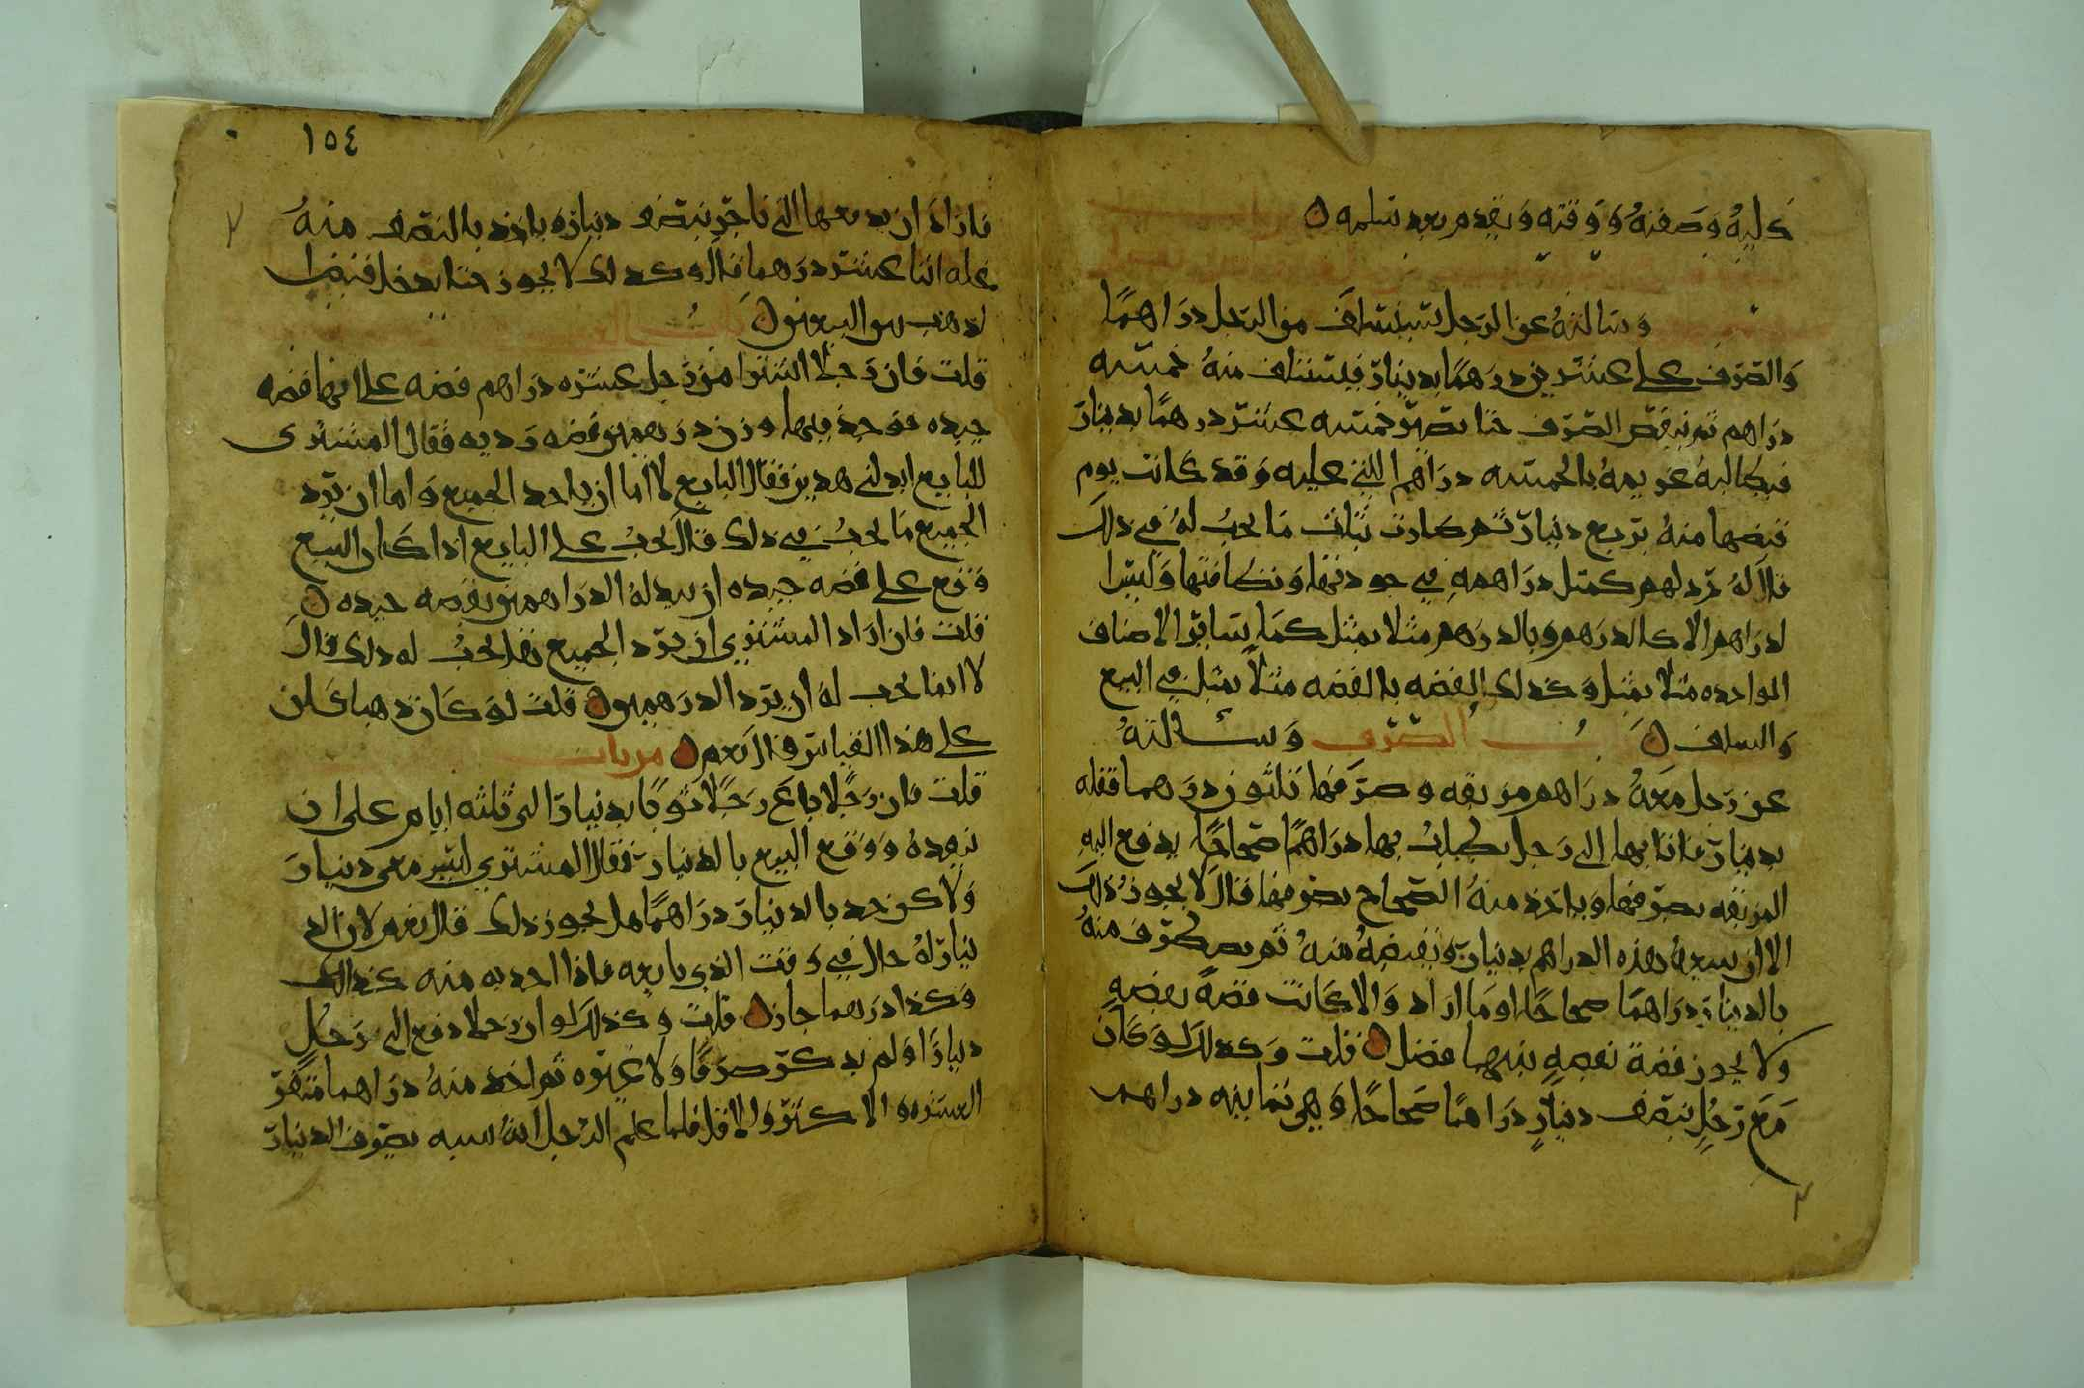 كيله وصفته ووقته ويقدم بعد سلمه
وسالته عن الرجل يستسلف من الرجل دراهما
والصرف على عشرين درهما بدينار فيستسلف منه خمسه
دراهم ثم ينقص الصرف حتا تصير خمسه عشر درهما بدينار
فيطالبه غريمه بالخمسه دراهم التي عليه وقد كانت يوم
قبضها منه بربع دينار ثم صارت بثلث ما يجب له في ذلك
قال له ترد لهم كمثل دراهمه في جودتها ونظافتها وليس
لدراهم الا كالدرهم وبالدرهم مثلا بمثل كما ساير الاصناف
الواحده مثلا بمثل وكذلك الفضه بالفضه مثلا بمثل في البيع
والسلف باب الصرف وسالته
عن رجل معه دراهم مزبقه وصرفها ثلثون درهما قفله
بدينار فاتا بها الى رجل يطلب بها دراهما صحاحا يدفع اليه
المزبقه بصرفها وياخذ منه الصحاح بصرفها قال لا يجوز ذلك
الا ان يبيعه هذه الدراهم بدينار ويقبضه منه ثم يصطرف منه
بالدينار دراهما صحاحا او ما اراد والا كانت فضه بفضه
ولا يجوز فضة بفضه بينهما فضل قلت وكذلك لو كان
مع رجل نصف دينار دراهما صحاحا وهي ثمانيه دراهم
١٥٤
فاراد ان يدفعها الى تاجر بنصف دينار وياخذ بالنصف منه
غله اثنا عشر درهما قال وكذلك لا يجوز حتا يدخل قبضا
لذهب بين البيعين
قلت فان رجلا اشترا من رجل عشره دراهم فضه على انها فضه
جيده فوجد فيها وزن درهمين فضه رديه فقال المشترى
للبايع ابدلني هذين فقال البايع لا اما ان ياخذ الجميع واما ان ترد
الجميع ما يجب في ذلك قال يجب على البايع اذا كان البيع
وقع على فضه جيده ان يبدله الدراهمين بفضه جيده
قلت فان اراد المشتري ان يرد الجميع هل يجب له ذلك قال
لا انما يجب له ان يرد الدرهمين قلت لو كان ذهبا كان
على هذا القياس قال نعم
قلت فان رجلا باع رجلا ثوبا بدينار الى ثلثه ايام على ان
ينقده ووقع البيع بالدينار فقال المشتري ليس معى دينار
ولاكن خذ بالدينار دراهما هل يجوز ذلك قال نعم لان الد
ينار له حال في وقت الذي بايعه فاذا اخذ به منه كذا
وكذا درهما جاز قلت وكذلك لو ان رجلا دفع الى رجل
دينارا ولم يذكر صرفا ولا غيره ثم اخذ منه دراهما متفرقه
العشره والاكثر والاقل فلما علم الرجل انه سبه بصرف الدينار